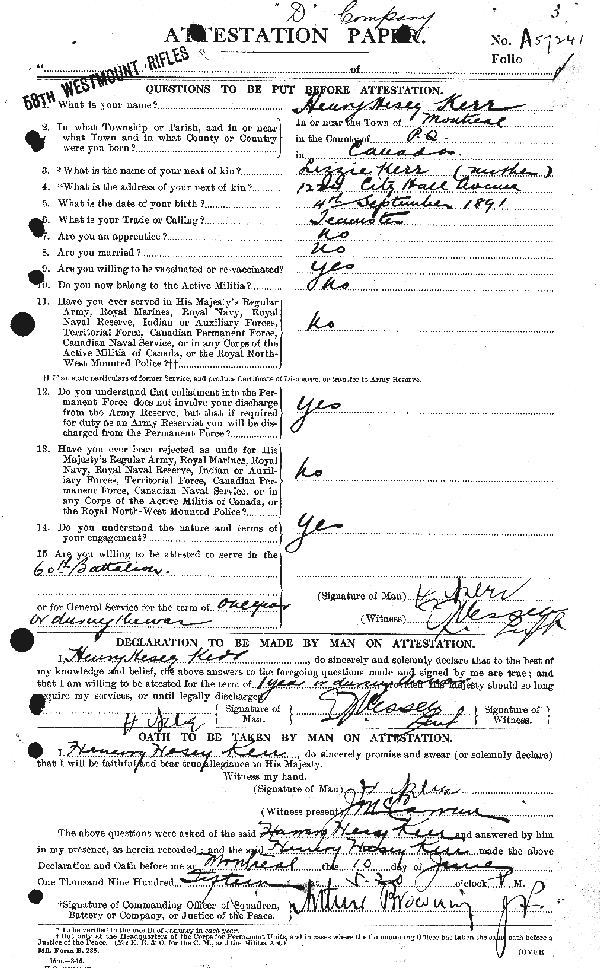 "D" Company
3
ATTESTATION PAPER.
No. A57241
Folio
58TH WESTMOUNT RIFLES
" of
QUESTIONS TO BE PUT BEFORE ATTESTATION.
What is your name? Henry Hesey Kerr
2. In what Township or Parish, and in or near what Town and in what County or Country were you born?
In or near the Town of Montreal
in the County of P.Q.
in Canada
3. What is the name of your next of kin? Lizzie Kerr (mother)
4. What is the address of your next of kin? City Hall Avenue
5. What is the date of your birth? 4th September 1891
6. What is your Trade or Calling? Teamster
7. Are you an apprentice? No
8. Are you married? No
9. Are you willing to be vaccinated or re-vaccinated? Yes
10. Do you now belong to the Active Militia? No
11. Have you ever served in His Majesty's Regular
Army, Royal Marines, Royal Navy, Royal
Naval Reserve, Indian or Auxiliary Forces,
Territorial Force, Canadian Permanent Force,
Canadian Naval Service, or in any Corps of the
Active Militia of Canada, or the Royal North-
West Mounted Police?†† No
†† If so state particulars of former Service, and produce Certificate of Discharge, or transfer to Army Reserve.
12. Do you understand that enlistment into the Per-
manent Force does not involve your discharge
from the Army Reserve, but that if required
for duty as an Army Reservist you will be dis-
charged from the Permanent Force? Yes
13. Have you ever been rejected as unfit for His
Majesty's Regular Army, Royal Marines, Royal
Navy, Royal Naval Reserve, Indian or Auxil-
iary Forces, Territorial Force, Canadian Per-
manent Force, Canadian Naval Service, or in
any Corps of the Active Militia of Canada, or
the Royal North-West Mounted Police? No
14. Do you understand the nature and terms of
your engagement? Yes
15 Are you willing to be attested to serve in the
60th Battalion.
(Signature of Man) H Kerr
or for General Service for the term of one year
(Witness)
or during the war
DECLARATION TO BE MADE BY MAN ON ATTESTATION.
I, Henry Hesey Kerr, do sincerely and solemnly declare that to the best of
my knowledge and belief, the above answers to the foregoing questions made and signed by me are true; and
that I am willing to be attested for the term of 1 year or during the war His Majesty should so long
require my services, or until legally discharged.
H Kerr
Signature of Man.
Signature of Witness.
OATH TO BE TAKEN BY MAN ON ATTESTATION.
I, Henry Hesey Kerr, do sincerely promise and swear (or solemnly declare)
that I will be faithful and bear true allegiance to His Majesty.
Witness my hand.
(Signature of Man) H Kerr
(Witness present)
The above questions were asked of the said Henry Hesey Kerr and answered by him
in my presence, as herein recorded; and the said Henry Hesey Kerr made the above
Declaration and Oath before me at Montreal this 10 day of June
One Thousand Nine Hundred Fifteen at 8.30 o'clock P. M.
*Signature of Commanding Officer of Squadron,
Battery or Company, or Justice of the Peace.
Arthur Browning J.P.
* To be verified in the month of January in each year.
Justice of the Peace.
MIL. FORM B. 235.
(OVER